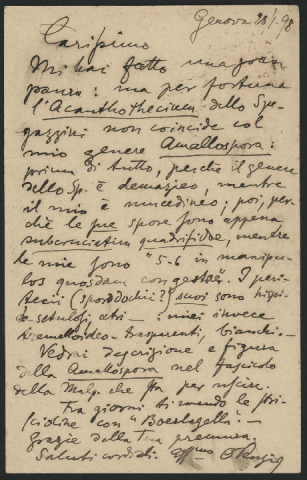 Genova 28/1. 98
Carissimo
Mi hai fatto una gran
paura: ma per fortuna
l'Acanthothecium dello Spe-
gazzini non coincide col
mio genere Amallospora:
prima di tutto, perchè il genere
dello Sp. è demazieo, mentre
il mio è mucedineo; poi, per-
chè le sue spore sono appena
subcruciatim quadrifidae, mentre
le mie sono "5-6 in manipu-
los quosdam congestae". I peri-
tecii (sporodochii?) suoi sono hispi-
do-setulosi, atri - i miei invece
tremelloideo-trasparenti, bianchi.-
Vedrai descrizione e figura
della Amallospora nel fascicolo
della Malp. che sta per uscire.
Fra giorni ti mando le stri-
scioline con "Boerlagella".-
Grazie della tua premura.
Saluti cordiali. aff.mo O Penzig